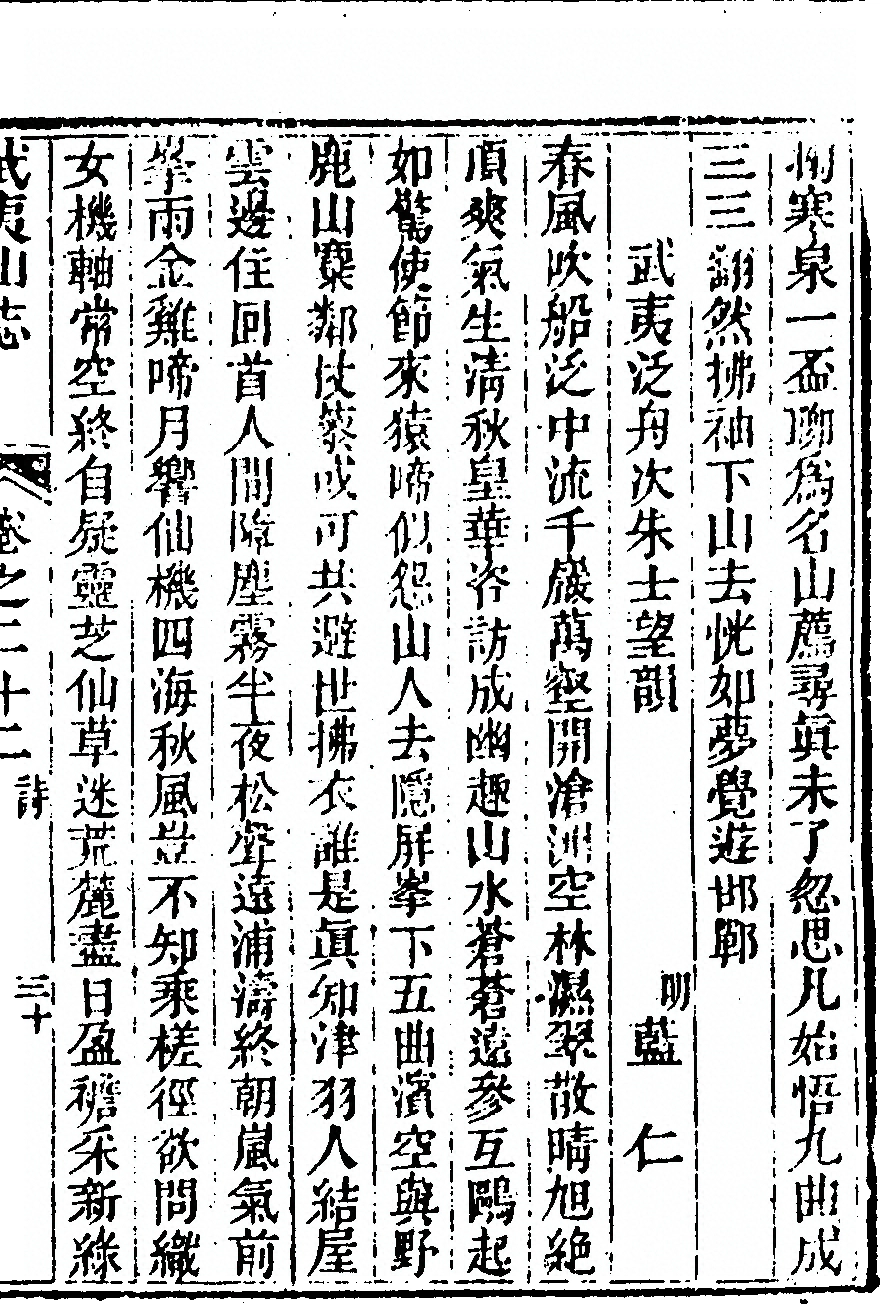 掬寒泉一盃聊為名山薦尋眞未了忽思凡始悟九曲成
三三翻然拂袖下山去恍如夢覺遊邯鄲
武夷泛舟次朱士望韻 明藍仁
春風吹船泛中流千巖萬壑開滄洲空林濕翠散晴旭絶
頂爽氣生清秋皇華咨訪成幽趣山水蒼蒼遠參互鷗起
如驚使節來猿啼似怨山人去隱屏峯下五曲濱空與野
鹿山麋鄰仗藜或可共避世拂衣誰是眞知津羽人結屋
雲邊住回首人間隔塵霧半夜松聲遠浦濤終朝嵐氣前
峯雨金雞啼月響仙機四海秋風豈不知乘槎徑欲問織
女機軸常空終自疑靈芝仙草迷荒麓盡日盈襜采新綠
武夷山志 卷之二十二 詩 三十